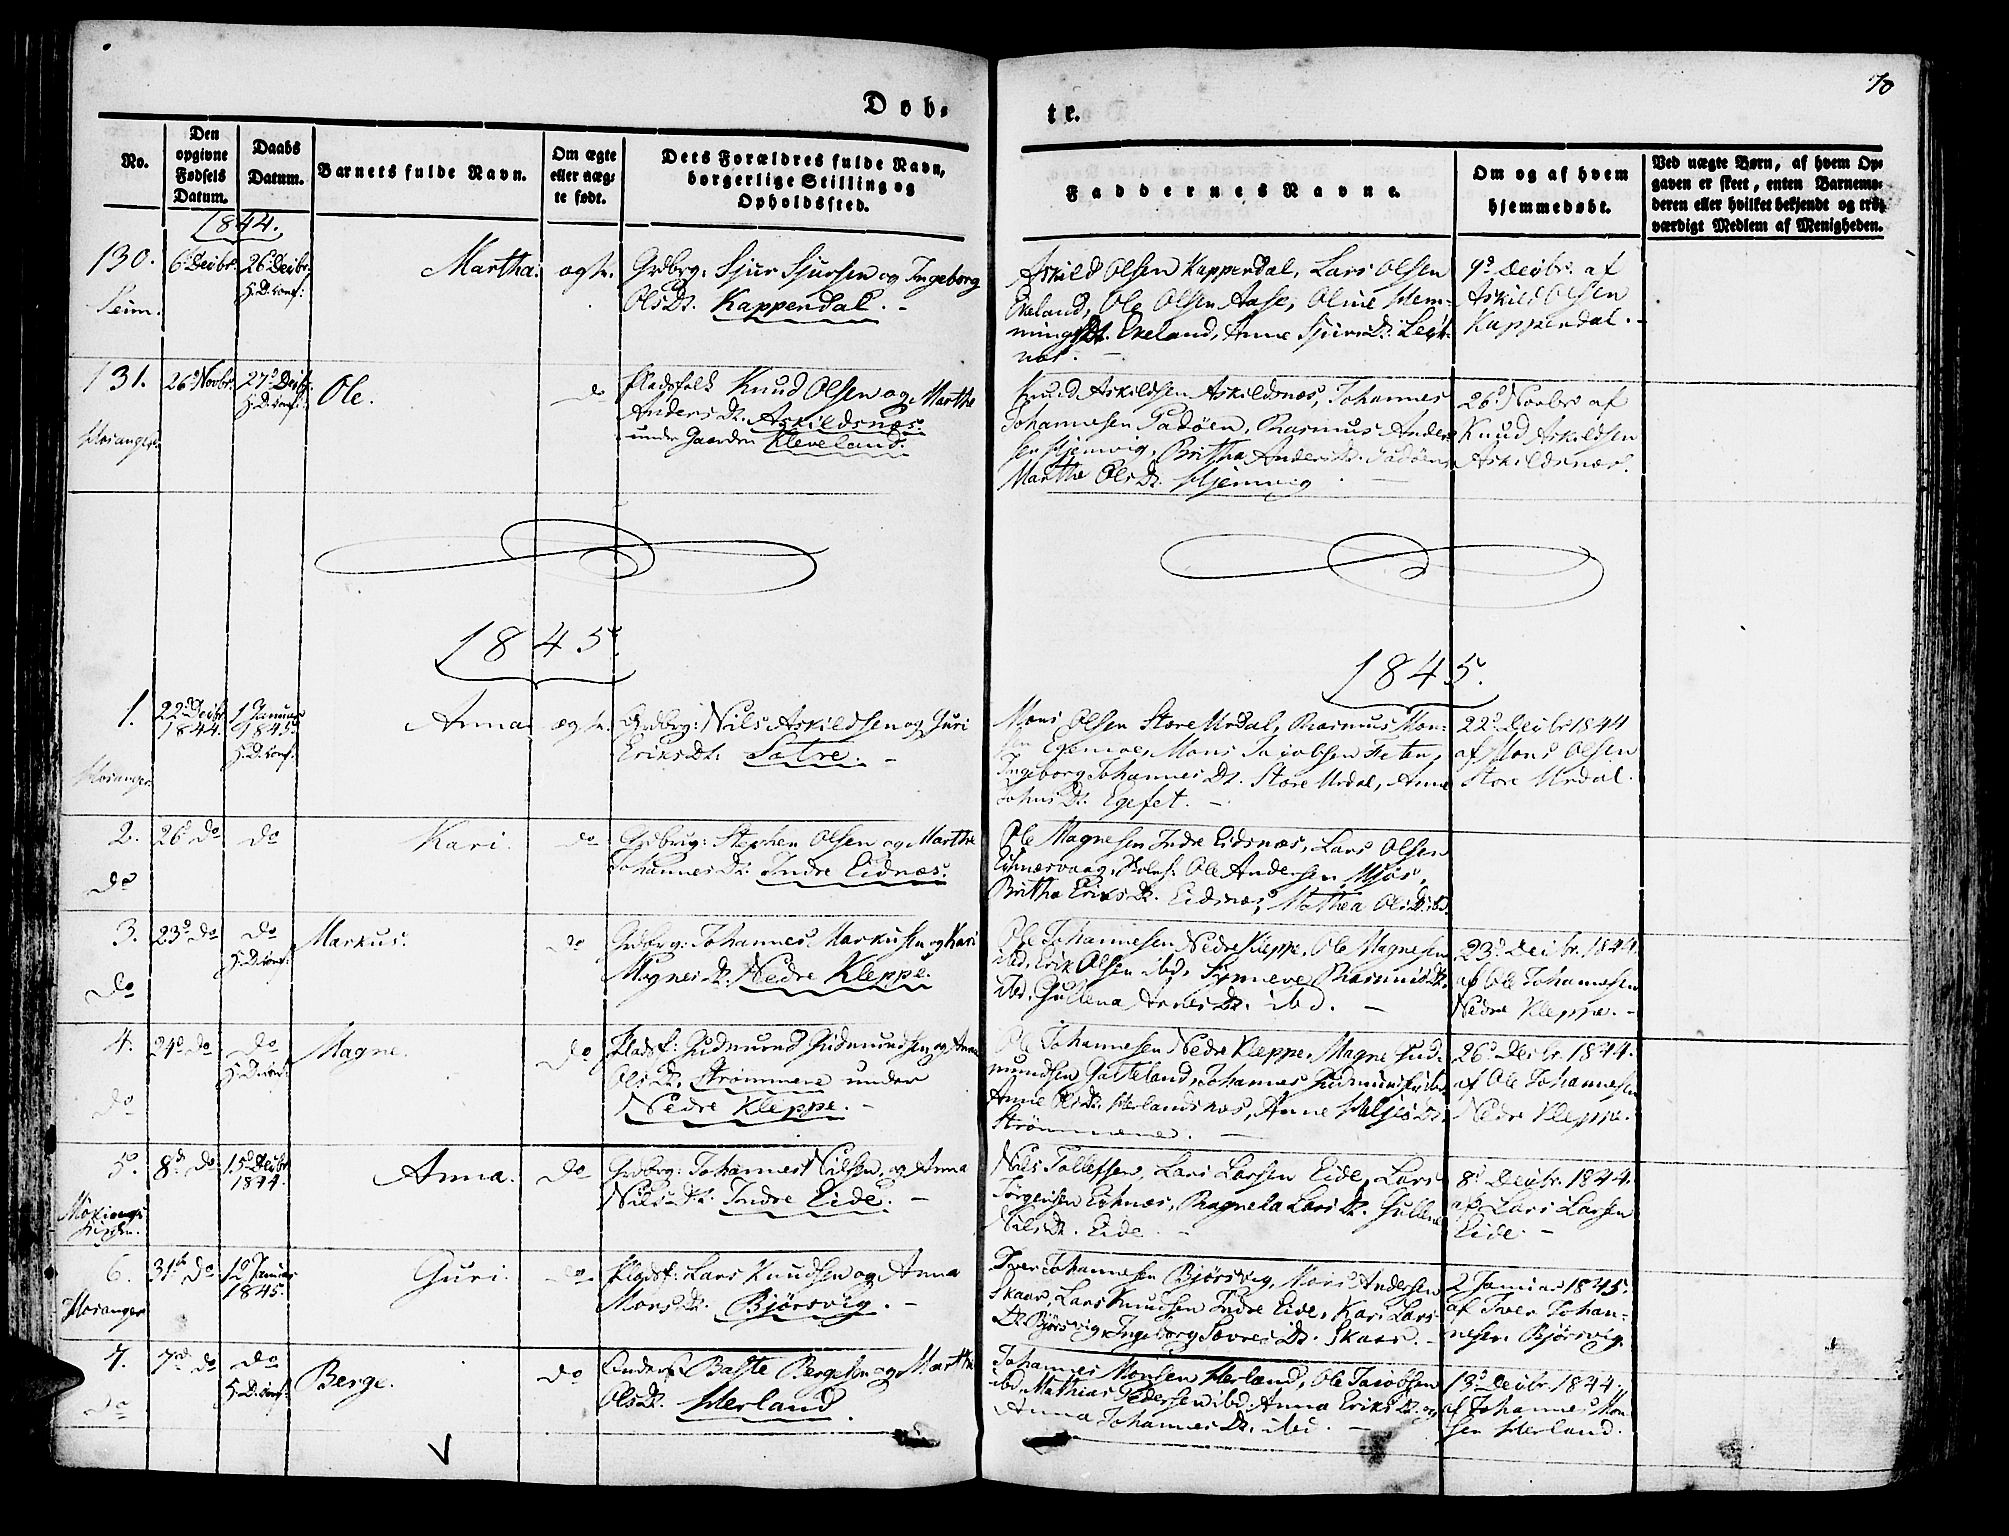 70
Dob-
te.
No.
Den
opgivne
Fødsels
Datum.
Daabs
Datum.
Barnets fulde Navn.
Om ægte
eller uæg-
te født.
Dets Forældres fulde Navn,
borgerlige Stilling og
Opholdssted.
Faddernes Navne.
Om og af hvem
hjemmedøbt.
Ved uægte Børn, af hvem Op-
gaven er skeet, enten Barnemo-
deren eller hvilket bekjendt og tro-
værdigt Medlem af Menigheden.
1844.
130.
Seim.
6 Decbr.
26 Decbr.
H. D. conf:
Martha.
ægte.
Grdbrg: Sjur Sjursen og Ingeborg
Olsdt. Kappendal. -
Askild Olsen Kappendal, Lars Olsen
Eveland, Ole Olsen Aase, Oline Hem-
mingsdt. Eveland, Anne Sjursdt:
9d Decbr. af
Askild Olsen
Kappendal. -
131.
Hosanger.
26d Novbr.
27d Decbr.
H. D. conf:
Ole.
do
Pladsfolk Knud Olsen og Marthe
Andersdt. Askildsnæs
under Gaarden Kleveland.
Knud Askildsen Askildsnæs, Johannes
Johannesen Padøen, Rasmus Ander-
sen Hjemvig, Britha Andersdt. Padøen
Marthe Olsdt. Hjemvig. -
26d Novbr af
Knud Askildsen
Askildsnæs.
1845.
1845.
1.
Hosanger
22d Decbr
1844.
1 Januar
1845.
H. D. conf:
Anna
ægte.
Grdbrg: Nils Askildsen og Guri
Eriksdt. Sætre. -
Mons Olsen Store Urdal, Rasmus Mon-
sen Egemoe, Mons Jacobsen Feten,
Ingeborg Johannesdt. Store Urdal, Anne
Johnsdt. Egefet. -
22d Decbr 1844
af Mons Olsen
Store Urdal.
2.
do
26d do
do
Kari.
do
Grdbrg: Stephen Olsen og Marthe
Johannesdt: Indre Eidnæs.
Ole Magnesen Indre Eidsnæs, Lars Olsen
Ole Andersen Mjøs,
Britha Eriksdt. Eidsnæs, Mathea Olsdt. ibd.
3.
do
23d do
do
H. D. conf:
Markus.
do
Grdbrg: Johannes Markussen og Kari
Magnesdt. Nedre Kleppe.
Ole Johannesen Nedre Kleppe, Ole Magnesen
ibd, Erik Olsen ibd, Synneve Rasmusdt.
ibd, Gullena Andersdt. ibd. -
23d Decbr. 1844.
af Ole Johannesen
Nedre Kleppe. -
4.
do
24d do
do
H. D. conf:
Magne.
do
Pladsf: Gudmund Gudmundsen og Anna
Olsdt. Strømmene under
Nedre Kleppe. -
Ole Johannesen Nedre Kleppe, Magne Gud-
mundsen Galteland, Johannes Gudmundsen ibd,
Anne Olsdt. Herlandsnæs, Anne Helgesdt.
Strømmene. -
26d Decbr. 1844.
af Ole Johannesen
Nedre Kleppe.
5.
Møkings
8d do
15d Decbr
1844.
Anna.
do
Grdbrg: Johannes Nilsen og Anna
Nilsdt: Indre Eide. -
Nils Tollefsen, Lars Larsen Eide, Lars
Jørgensen Eidnæs, Ragnela Larsdt. Gullena
Nilsdt. Eide. -
8d Decbr. 1844.
af Lars Larsen
Eide. -
6.
Hosanger
31te do
1d Januar
1845.
Guri.
do
Pladsf: Lars Knudsen og Anna
Monsdt. Bjørsvig. -
Iver Johannesen Bjørsvig, Mons Andersen
Skaar, Lars Knudsen Indre Eide, Kari Lars-
dt Bjørsvig, Ingeborg Sævresdt. Skaar. -
2 Januar 1845.
af Iver Johan-
nesen Bjørsvig.
7.
do
7d do
do
H. D. conf:
Berge.
do
Baste Bergesen og Marthe
Olsdt. Herland.
Johannes Monsen Herland, Ole Jacobsen
ibd, Mathias Pedersen ibd, Anna Eriksdt. og
Anna Johannesdt. ibd. -
13d Decbr. 1844.
af Johannes Mon-
sen Herland.
V